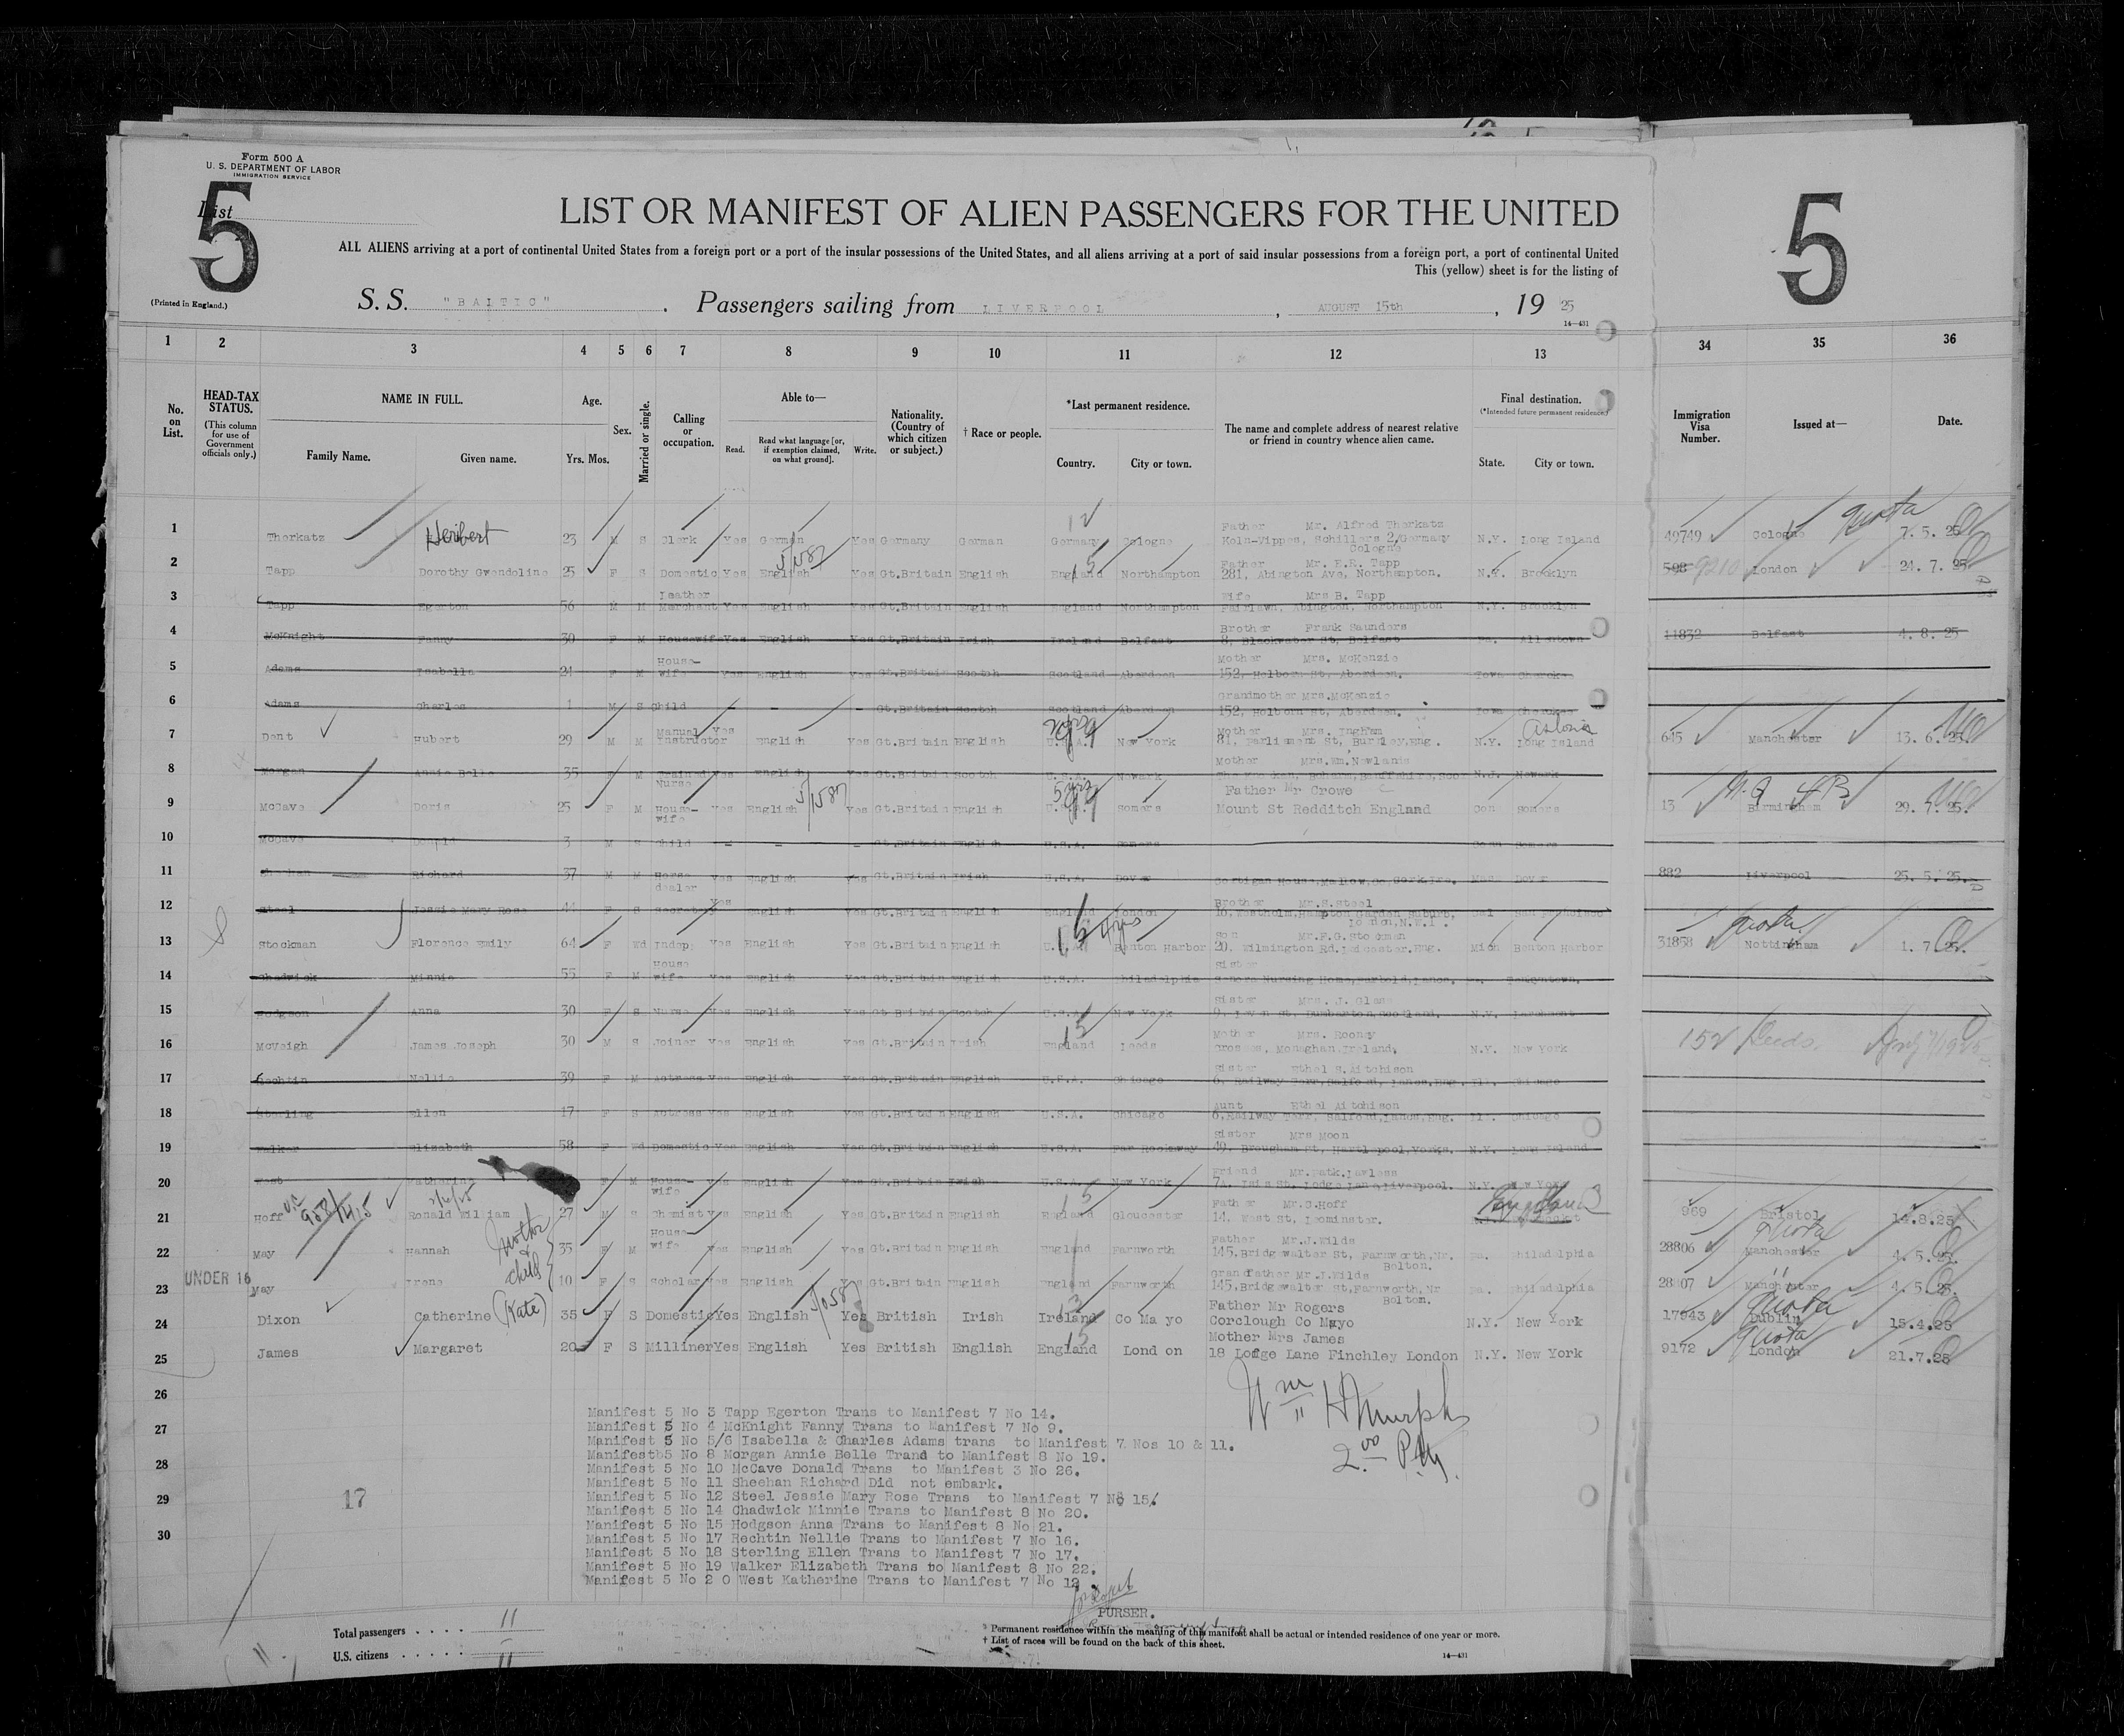 Form 500 A
U. S. DEPARTMENT OF LABOR
IMMIGRATION SERVICE
List
5
5
LIST OR MANIFEST OF ALIEN PASSENGERS FOR THE UNITED
ALL ALIENS arriving at a port of continental United States from a foreign port or a port of the insular possessions of the United States, and all aliens arriving at a port of said insular possessions from a foreign port, a port of continental United
This (yellow) sheet is for the listing of
(Printed in England.)
S. S. "BALTIC". Passengers sailing from LIVERPOOL, AUGUST 15th, 19 25
14—431
1 2 3 4 5 6 7 8 9 10 11 12 13 34 35 36
No. on List.
HEAD-TAX STATUS. (This column for use of Government officials only.)
NAME IN FULL. Family Name. Given name.
Age. Yrs. Mos.
Sex.
Married or single.
Calling or occupation.
Able to— Read. Read what language [or, if exemption claimed, on what ground]. Write.
Nationality. (Country of which citizen or subject.)
† Race or people.
*Last permanent residence. Country. City or town.
The name and complete address of nearest relative or friend in country whence alien came.
Final destination. (*Intended future permanent residence.) State. City or town.
Immigration Visa Number.
Issued at—
Date.
1 Thorkatz Heribert 23 M S Clerk Yes German Yes Germany German Germany Cologne Father Mr. Alfred Thorkatz N.Y. Long Island 49749 Cologne quota 7. 5. 25
2 Tapp Dorothy Gwendoline 25 F S Domestic Yes English Yes Gt.Britain English England Northampton Father Mr. E.R. Tapp 281, Abington Ave, Northampton. N.Y. Brooklyn 9210 London 24. 7. 25
3 Tapp Egerton 56 M M Leather Merchant Yes English Yes Gt.Britain English England Northampton Wife Mrs B. Tapp Fairlawn, Abington, Northampton N.Y. Brooklyn
4 McKnight Fanny 30 F M Housewife Yes English Yes Gt.Britain Irish Ireland Belfast Brother Frank Saunders 8, Blackwater St, Belfast Pa. Allentown 11832 Belfast 4. 8. 25
5 Adams Isabella 24 F M House-wife Yes English Yes Gt.Britain Scotch Scotland Aberdeen Mother Mrs. McKenzie 152, Holborn St, Aberdeen. Iowa Cherokee
6 Adams Charles 1 M S Child - - - Gt.Britain Scotch Scotland Aberdeen Grandmother Mrs.McKenzie 152, Holborn St, Aberdeen. Iowa Cherokee
7 Dent Hubert 29 M M Manual Instructor Yes English Yes Gt.Britain English U.S.A. New York Mother Mrs. Ingham 81, Parliament St, Burnley,Eng. N.Y. Long Island Astoria 645 Manchester 13. 6. 25.
8 Morgan Annie Belle 35 F M Trained Nurse Yes English Yes Gt.Britain Scotch U.S.A. Newark Mother Mrs.Wm.Newlands N.J. Newark
9 McCave Doris 25 F M House-wife Yes English Yes Gt.Britain English U.S.A. Somers Father Mr Crowe Mount St Redditch England Con Somers 13 Birmingham 29. 7. 25.
10 McCave Donald 3 M S Child - - - Gt.Britain English U.S.A. Somers Conn Somers
11 Sheehan Richard 37 M M Horse dealer Yes English Yes Gt.Britain Irish U.S.A. Dover Mass Dover 882 Liverpool 25. 5. 25.
12 Steel Jessie Mary Rose 44 F S Secretary Yes English Yes Gt.Britain English England London Brother Mr.S.Steel 16, Westholm,Hampton Garden Suburb, London,N.W.1. Cal San Francisco
13 Stockman Florence Emily 64 F Wd Indep: Yes English Yes Gt.Britain English U.S.A. Benton Harbor Son Mr.F.G.Stockman 20, Wilmington Rd,Leicester.Eng. Mich Benton Harbor 31858 quota Nottingham 1. 7. 25.
14 Chadwick Minnie 55 F M House wife Yes English Yes Gt.Britain English U.S.A. Philadelphia Sister
15 Hodgson Anna 30 F S Nurse Yes English Yes Gt.Britain Scotch U.S.A. New York Sister Mrs. J. Glass N.Y. Larchmont
16 McVeigh James Joseph 30 M S Joiner Yes English Yes Gt.Britain Irish England Leeds Mother Mrs. Rooney Monaghan,Ireland, N.Y. New York 152 Leeds
17 Rechtin Nellie 39 F M Actress Yes English Yes Gt.Britain English U.S.A. Chicago Sister Ethel S.Aitchison 6, Railway Terr,Salford, Lancs,Eng. Ill. Chicago
18 Sterling Ellen 17 F S Actress Yes English Yes Gt.Britain English U.S.A. Chicago Aunt Ethel Aitchison 6,Railway Terr, Salford,Lancs,Eng. Ill. Chicago
19 Walker Elizabeth 58 F Wd Domestic Yes English Yes Gt.Britain English U.S.A. Far Rockaway Sister Mrs Moon 49, Brougham St, Hartlepool,Yorks. N.Y. Long Island
20 West Katherine F M House-wife Yes English Yes Gt.Britain Irish U.S.A. New York Friend Mr.Patk.Lawless 7A, Isis St, Lodge Lane Liverpool. N.Y. New York
21 Hoff Ronald William 27 M S Chemist Yes English Yes Gt.Britain English England Gloucester Father Mr.S.Hoff 14, West St, Leominster. 969 Bristol 14.8.25
22 May Hannah 35 F M House-wife Yes English Yes Gt.Britain English England Farnworth Father Mr.J.Wilds 145,Bridgwater St, Farnworth,Nr. Bolton. Pa. Philadelphia 28806 quota Manchester 4. 5. 25.
Mother & child
UNDER 16
23 May Irene 10 F S Scholar Yes English Yes Gt.Britain English England Farnworth Grandfather Mr.J.Wilds 145,Bridgwater St,Farnworth,Nr Bolton. Pa. Philadelphia 28807 Manchester 4. 5. 25.
24 Dixon Catherine (Kate) 35 F S Domestic Yes English Yes British Irish Ireland Co Mayo Father Mr Rogers Corclough Co Mayo N.Y. New York 17943 quota Dublin 15.4.25
25 James Margaret 20 F S Milliner Yes English Yes British English England London Mother Mrs James 18 Lodge Lane Finchley London N.Y. New York 9172 quota London 21.7.25
26
27
28
29
30
17
Wm H Murphy
2.00 P.M.
Manifest 5 No 3 Tapp Egerton Trans to Manifest 7 No 14.
Manifest 5 No 4 McKnight Fanny Trans to Manifest 7 No 9.
Manifest 5 No 5/6 Isabella & Charles Adams trans to Manifest 7 Nos 10 & 11.
Manifest 5 No 8 Morgan Annie Belle Trans to Manifest 8 No 19.
Manifest 5 No 10 McCave Donald Trans to Manifest 3 No 26.
Manifest 5 No 11 Sheehan Richard Did not embark.
Manifest 5 No 12 Steel Jessie Mary Rose Trans to Manifest 7 No 15.
Manifest 5 No 14 Chadwick Minnie Trans to Manifest 8 No 20.
Manifest 5 No 15 Hodgson Anna Trans to Manifest 8 No 21.
Manifest 5 No 17 Rechtin Nellie Trans to Manifest 7 No 16.
Manifest 5 No 18 Sterling Ellen Trans to Manifest 7 No 17.
Manifest 5 No 19 Walker Elizabeth Trans to Manifest 8 No 22.
Manifest 5 No 2 0 West Katherine Trans to Manifest 7 No 12.
PURSER.
Total passengers . . . . 11
U.S. citizens . . . . . 
11
* Permanent residence within the meaning of this manifest shall be actual or intended residence of one year or more.
† List of races will be found on the back of this sheet.
14—431